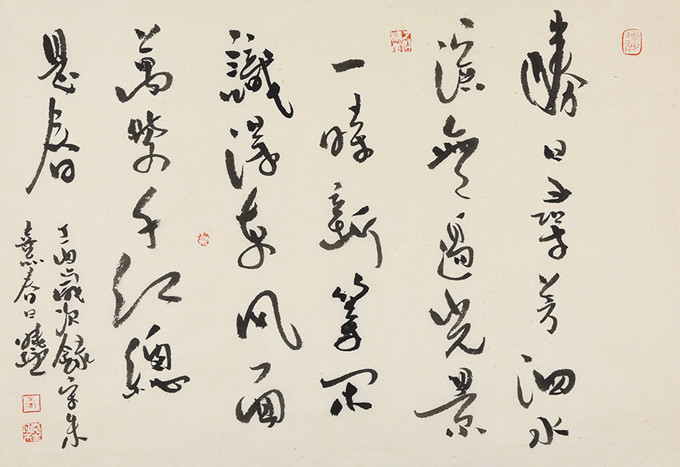 勝日尋芳泗水
濱無邊光景
一時新等閒
識得東風面
萬紫千紅總
是春
丁酉歲次錄宋朱
熹春日